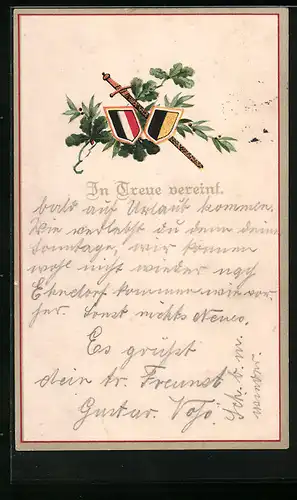 In Treue vereint.
bald auf Urlaub kommen.
Wie verlebst du denn deine
Sonntage, wir können
wohl nicht wieder nach
Ekndorf kommen wie vor
her. Sonst nichts Neues.
Es grüßt
dein tr. Freund
Gustav. Voß.
Sch. b. m.
wieder